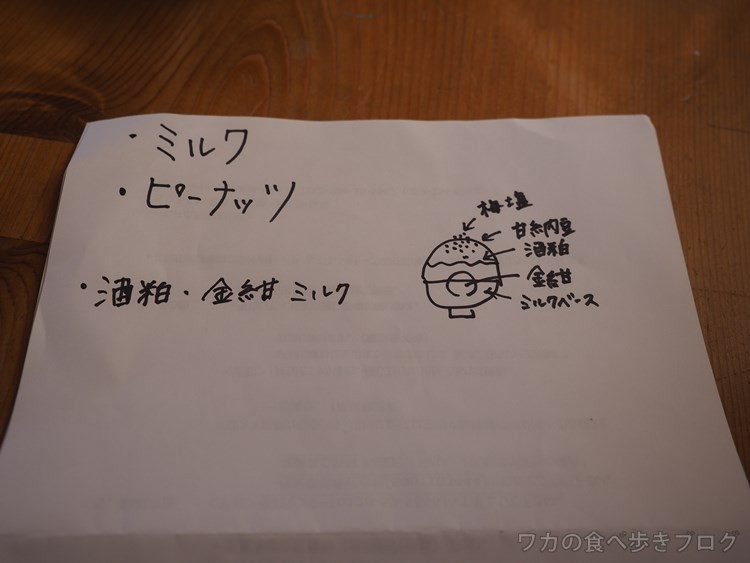 ・ミルク
・ピーナッツ
・酒粕・金紺 ミルク
梅塩
甘納豆
酒粕
金紺
ミルクベース
ワカの食べ歩きブログ